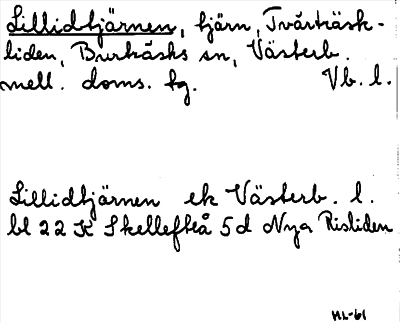 Lillidtjärnen, tjärn, Tvärträsk-
liden, Burträsks sn, Västerb.
mell. doms. tg. Vb. l.
Lillidtjärnen ek Västerb. l.
bl 22 K Skellefteå 5d Nya Risliden
HL-61